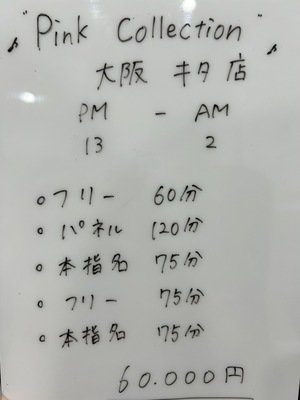 "Pink Collection"
大阪 キタ店
PM - AM
13 2
○フリー 60分
○パネル 120分
○本指名 75分
○フリー 75分
○本指名 75分
60.000円